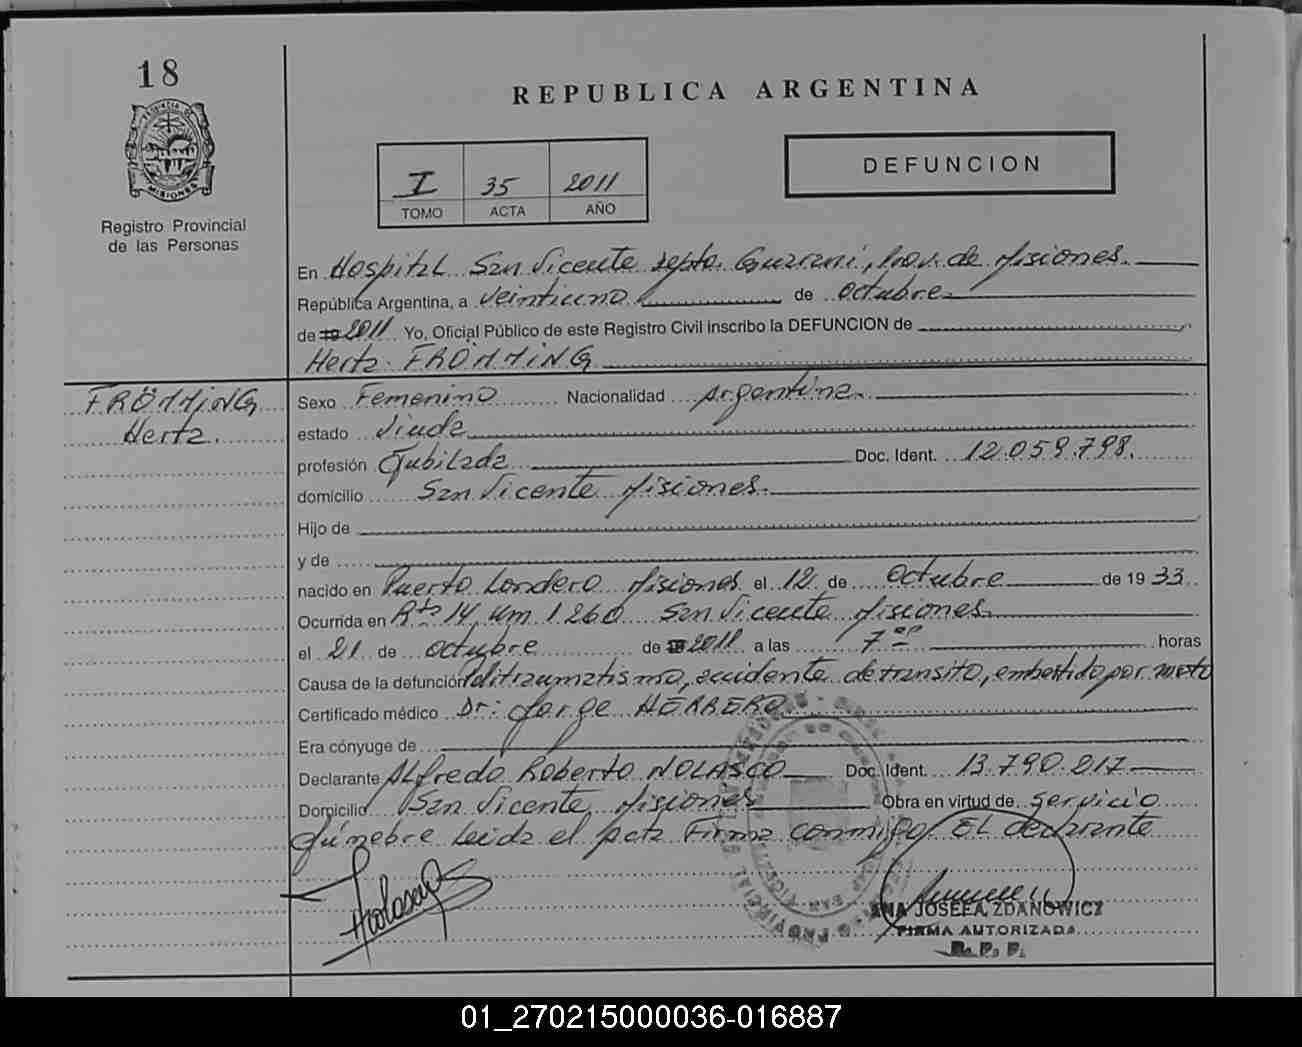 18
REPUBLICA ARGENTINA
PROVINCIA DE
MISIONES
Registro Provincial
de las Personas
I 35 2011
TOMO ACTA AÑO
DEFUNCION
En Hospital San Vicente depto. Guaraní, Prov. de Misiones.
República Argentina, a veintiuno de octubre
de 19 2011 Yo, Oficial Público de este Registro Civil inscribo la DEFUNCION de
Herta FRÖMMING
FRÖMMING
Herta.
Sexo Femenino Nacionalidad Argentina.
estado Viuda
profesión Jubilada Doc. Ident. 12.059.798.
domicilio San Vicente Misiones.
Hijo de
y de
nacido en Puerto Londero Misiones el 12 de octubre de 1933
Ocurrida en Rta 14, Km 1260 San Vicente Misiones.
el 21 de octubre de 2011 a las 7 horas
Causa de la defunción Politraumatismo, accidente de transito, embestido por moto
Certificado médico Dr: Jorge HERRERO
Era cónyuge de
Declarante Alfredo Roberto NOLASCO Doc. Ident. 13.790.217
Domicilio San Vicente, Misiones Obra en virtud de servicio
fúnebre Leida el acta Firma conmigo EL declarante
Nolasco
ANA JOSEFA ZDANOWICZ
FIRMA AUTORIZADA
R. P. P.
01_270215000036-016887